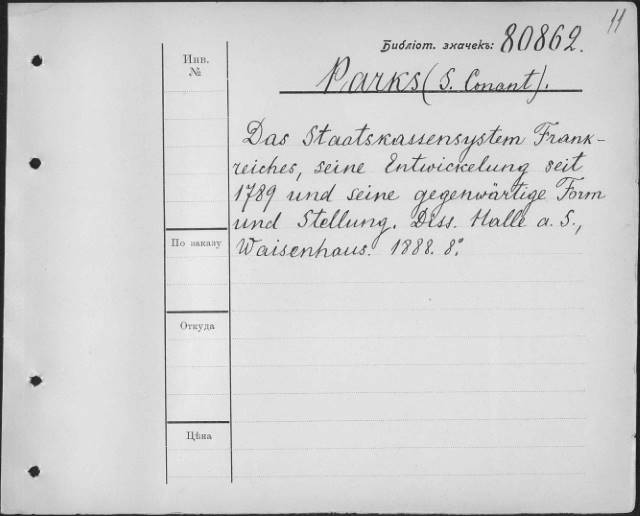 11
Библіот. значекъ: 80862.
Инв.
№
Parks (S. Conant).
Das Staatskassensystem Frank-
reiches, seine Entwickelung seit
1789 und seine gegenwärtige Form
und Stellung. Diss. Halle a. S.,
Waisenhaus. 1888. 8º.
По заказу
Откуда
Цѣна